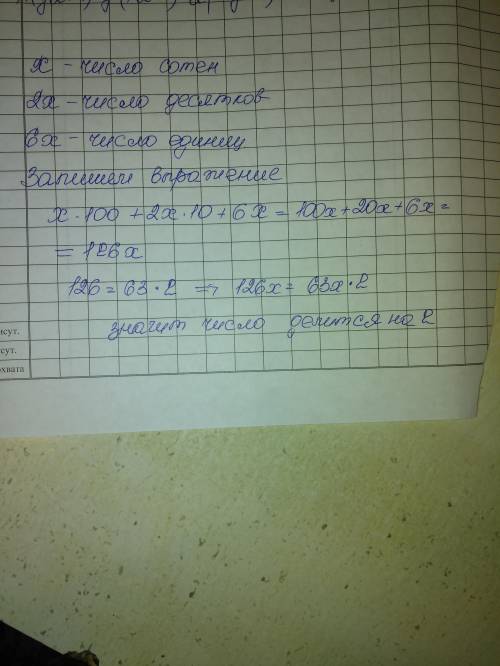 x - число сотен
2x - число десятков
6x - число единиц
Запишем выражение
x · 100 + 2x · 10 + 6x = 100x + 20x + 6x =
= 126x
126 = 63 · 2 ⇒ 126x = 63x · 2
значит число делится на 2
сут.
хвата